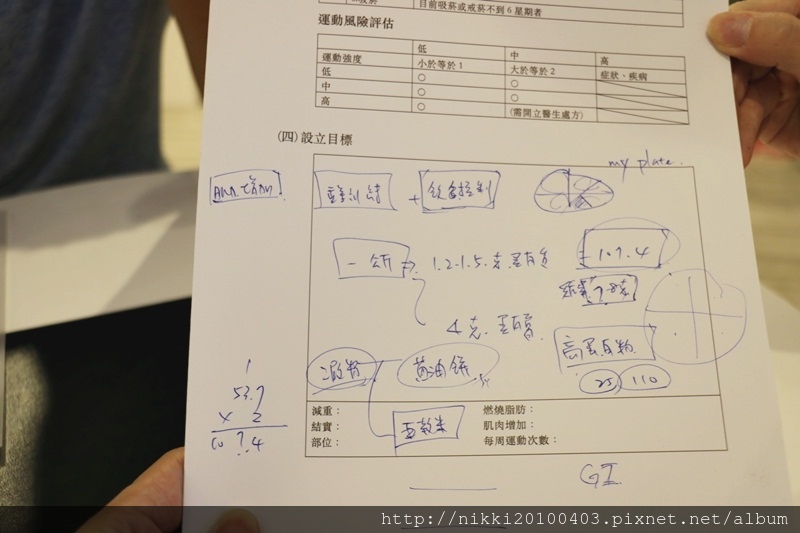 目前吸菸或戒菸不到 6 星期者
運動風險評估
低 中 高
運動強度 小於等於 1 大於等於 2 症狀、疾病
低 ○ ○
中 ○ ○
高 ○ (需開立醫生處方)
(四) 設立目標
my plate.
重訓 + 飲食控制
一公斤 => 1.2-1.5 克 蛋白質 107.4
4 克
高蛋白粉
澱粉 25 110
1
53.7
x 2
107.4
減重: 燃燒脂肪:
結實: 肌肉增加:
部位: 每周運動次數:
GI
http://nikki20100403.pixnet.net/album